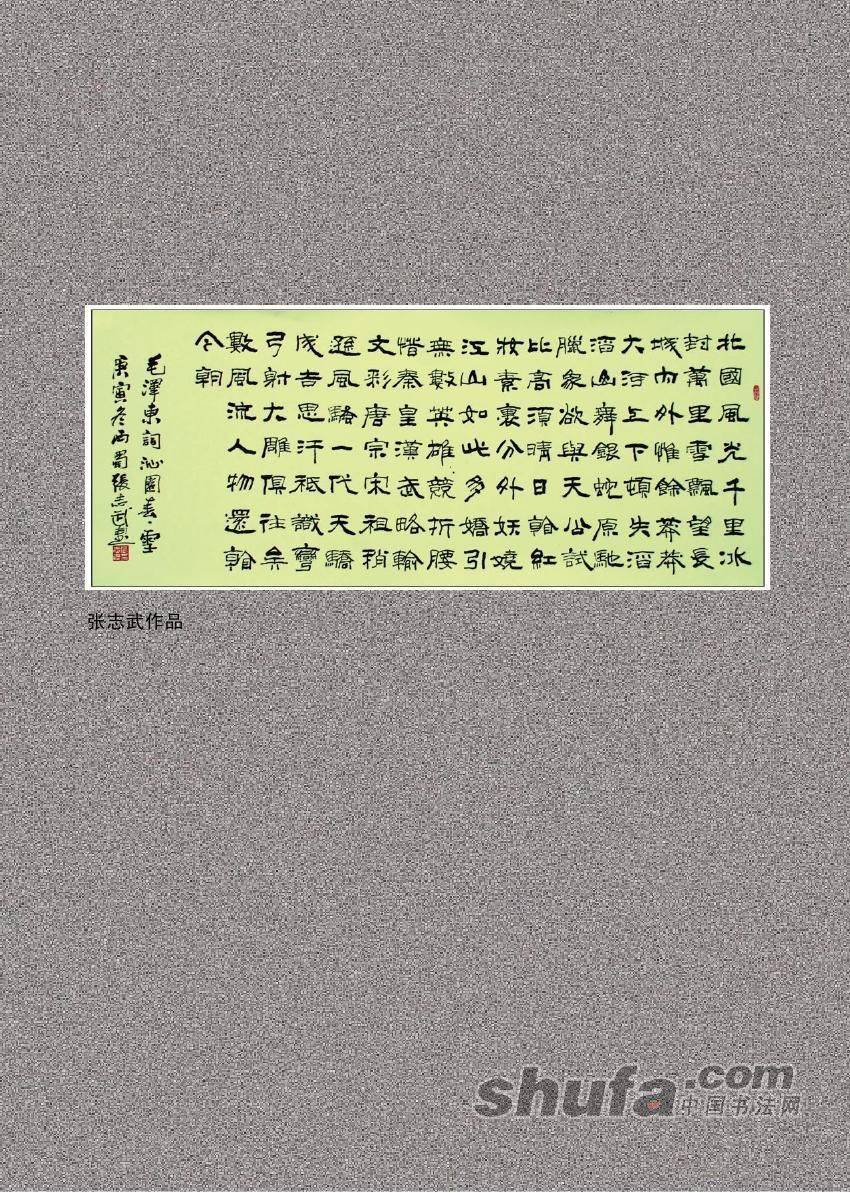 北國風光千里冰
封萬里雪飄望長
城内外惟餘莽莽
大河上下頓失滔
滔山舞銀蛇原馳
臘象欲與天公試
比高須晴日看紅
妝素裹分外妖嬈
江山如此多嬌引
無數英雄競折腰
惜秦皇漢武略輸
文彩唐宗宋祖稍
遜風騷一代天驕
成吉思汗祗識彎
弓射大雕俱往矣
數風流人物還看
今朝
毛澤東詞沁園春·雪
庚寅冬西蜀張志武書
张志武作品
shufa.com
中国书法网